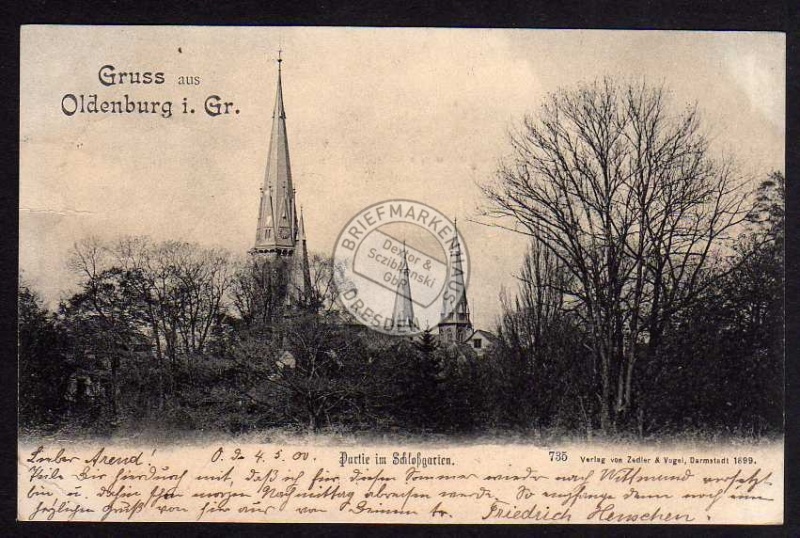 Gruss aus
Oldenburg i. Gr.
BRIEFMARKENHAUS
Dextor &
Sczibilanski
GbR
DRESDEN
Partie im Schloßgarten.
735 Verlag von Zedler & Vogel, Darmstadt 1899.
Lieber Arend! O. d. 4. 5. 00
Teile Dir hierdurch mit, daß ich für diesen Sommer wieder nach Wittmund versetzt
bin u. daher schon morgen Nachmittag abreisen werde. So empfange denn noch einen
herzlichen Gruß von hier aus von Deinem tr. Friedrich Henschen.